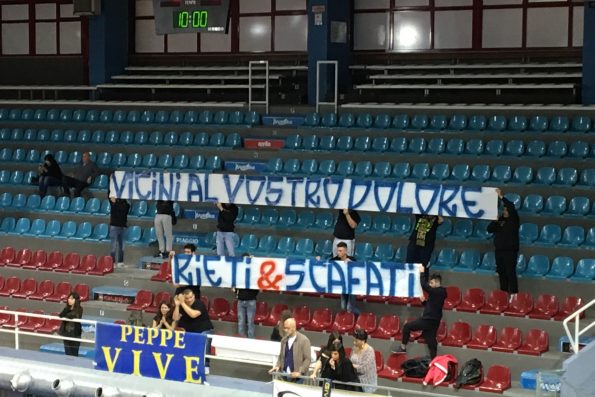 10:00
VICINI AL VOSTRO DOLORE
RIETI & SCAFATI
PEPPE
VIVE